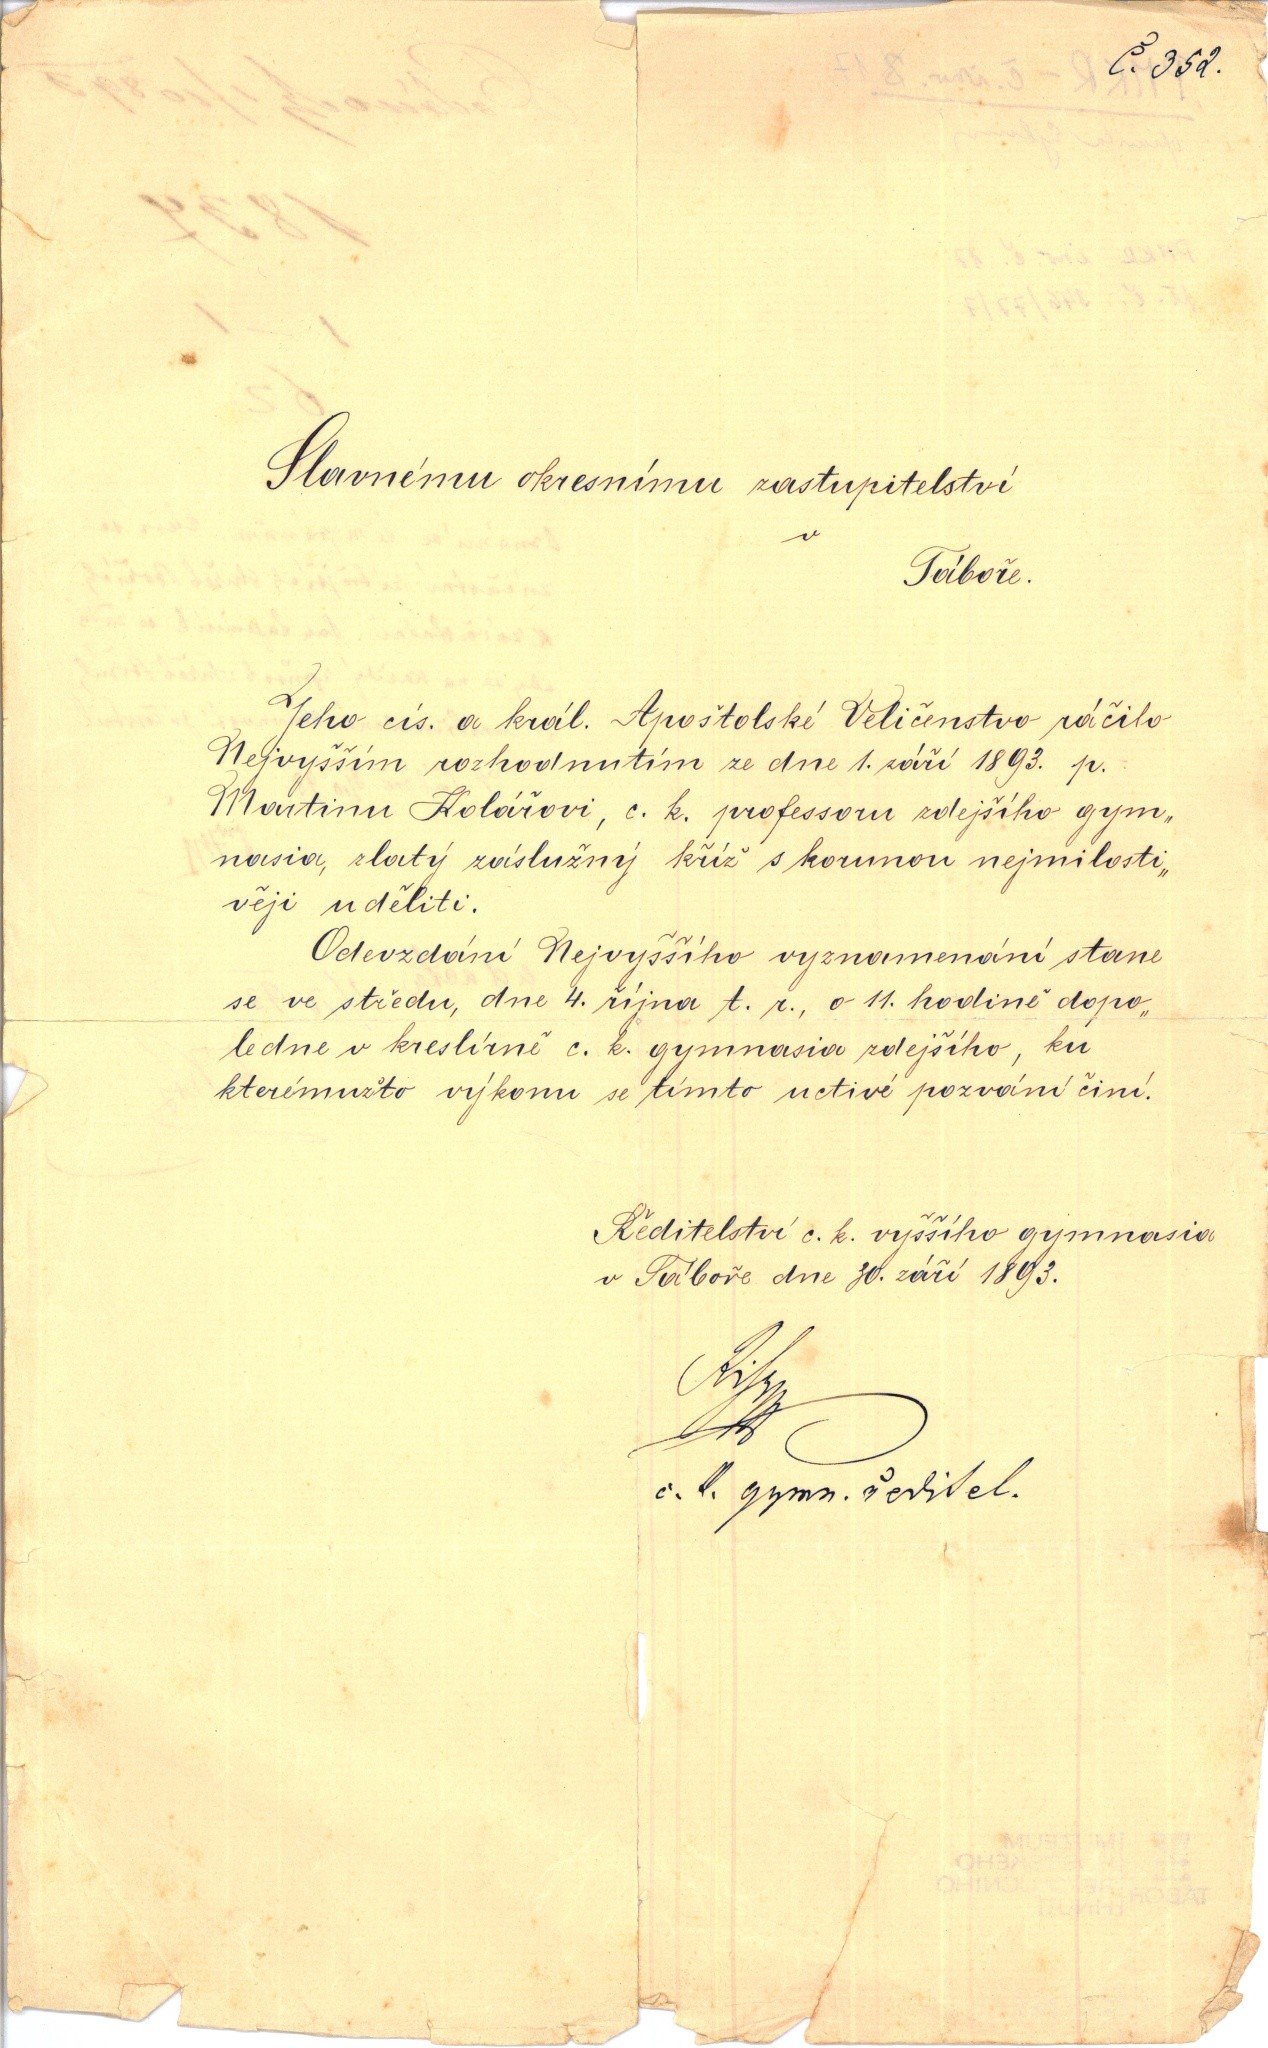 Č. 352.
Slavnému okresnímu zastupitelství
v
Táboře.
Jeho cís. a král. Apoštolské Veličenstvo ráčilo
Nejvyšším rozhodnutím ze dne 1. září 1893. p.
Martinu Kolářovi, c. k. professoru zdejšího gym„
nasia, zlatý záslužný kříž s korunou nejmilosti„
věji uděliti.
Odevzdání Nejvyššího vyznamenání stane
se ve středu, dne 4. října t. r., o 11. hodině dopo„
ledne v kreslírně c. k. gymnasia zdejšího, ku
kterémužto výkonu se tímto uctivé pozvání činí.
Ředitelství c. k. vyššího gymnasia
v Táboře dne 30. září 1893.
c. k. gymn. ředitel.